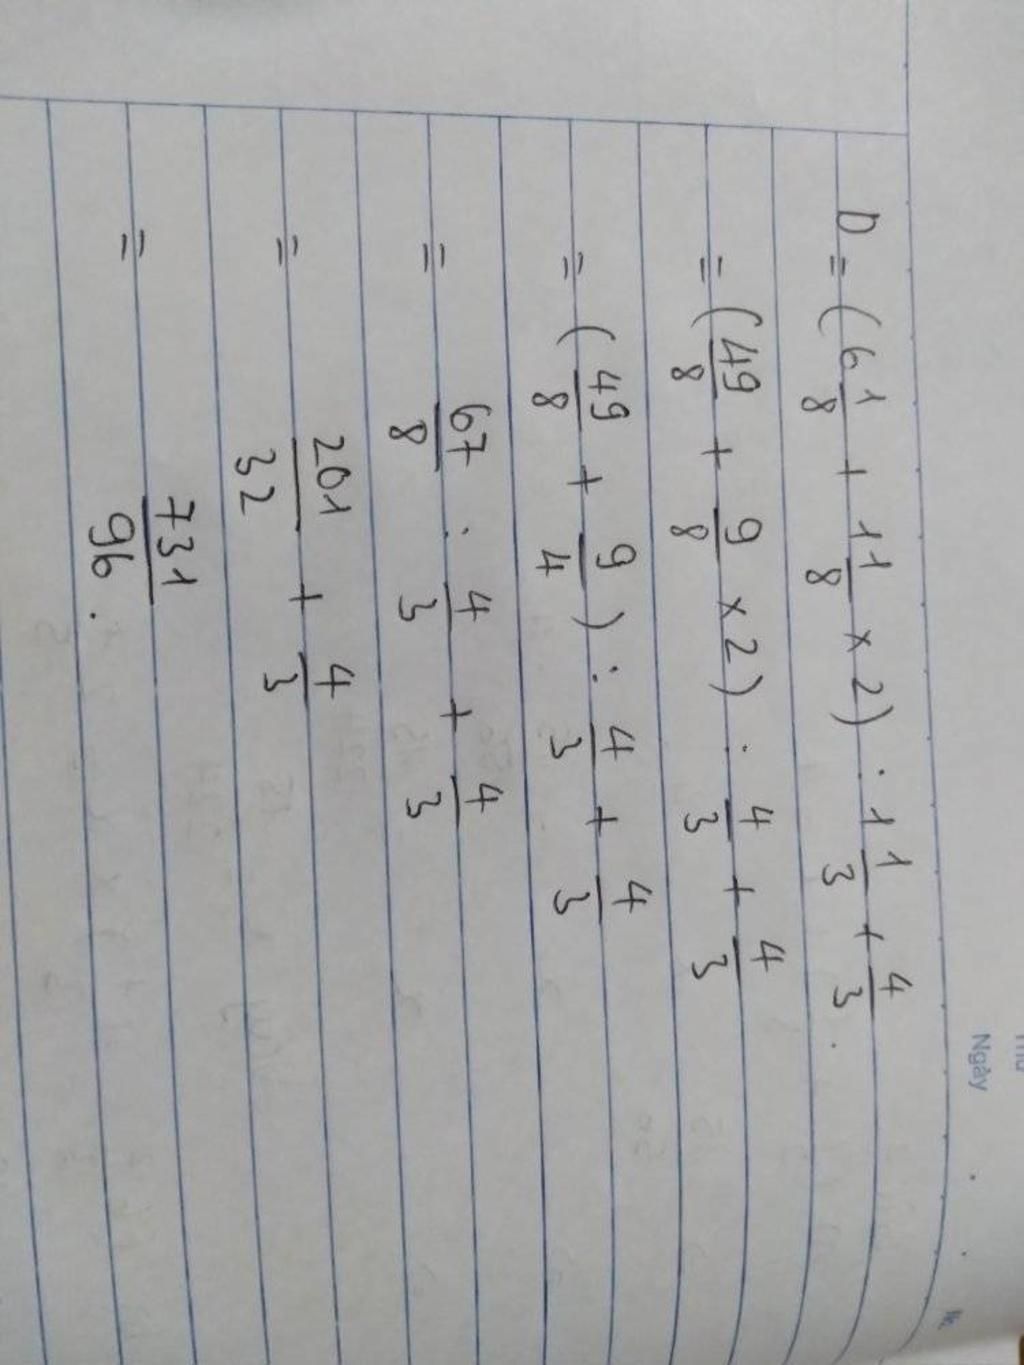 Ngày
D = (6 1/8 + 1 1/8 × 2) : 1 1/3 + 4/3
= (49/8 + 9/8 × 2) : 4/3 + 4/3
= (49/8 + 9/4) : 4/3 + 4/3
= 67/8 : 4/3 + 4/3
= 201/32 + 4/3
= 731/96.